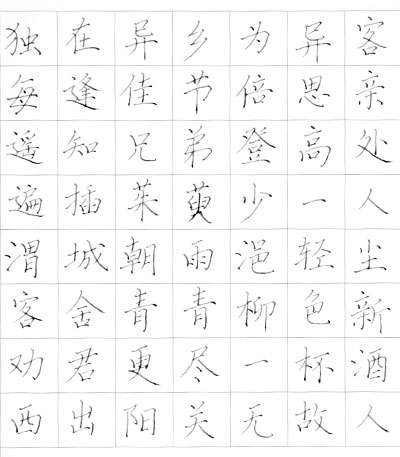 独在异乡为异客
每逢佳节倍思亲
遥知兄弟登高处
遍插茱萸少一人
渭城朝雨浥轻尘
客舍青青柳色新
劝君更尽一杯酒
西出阳关无故人